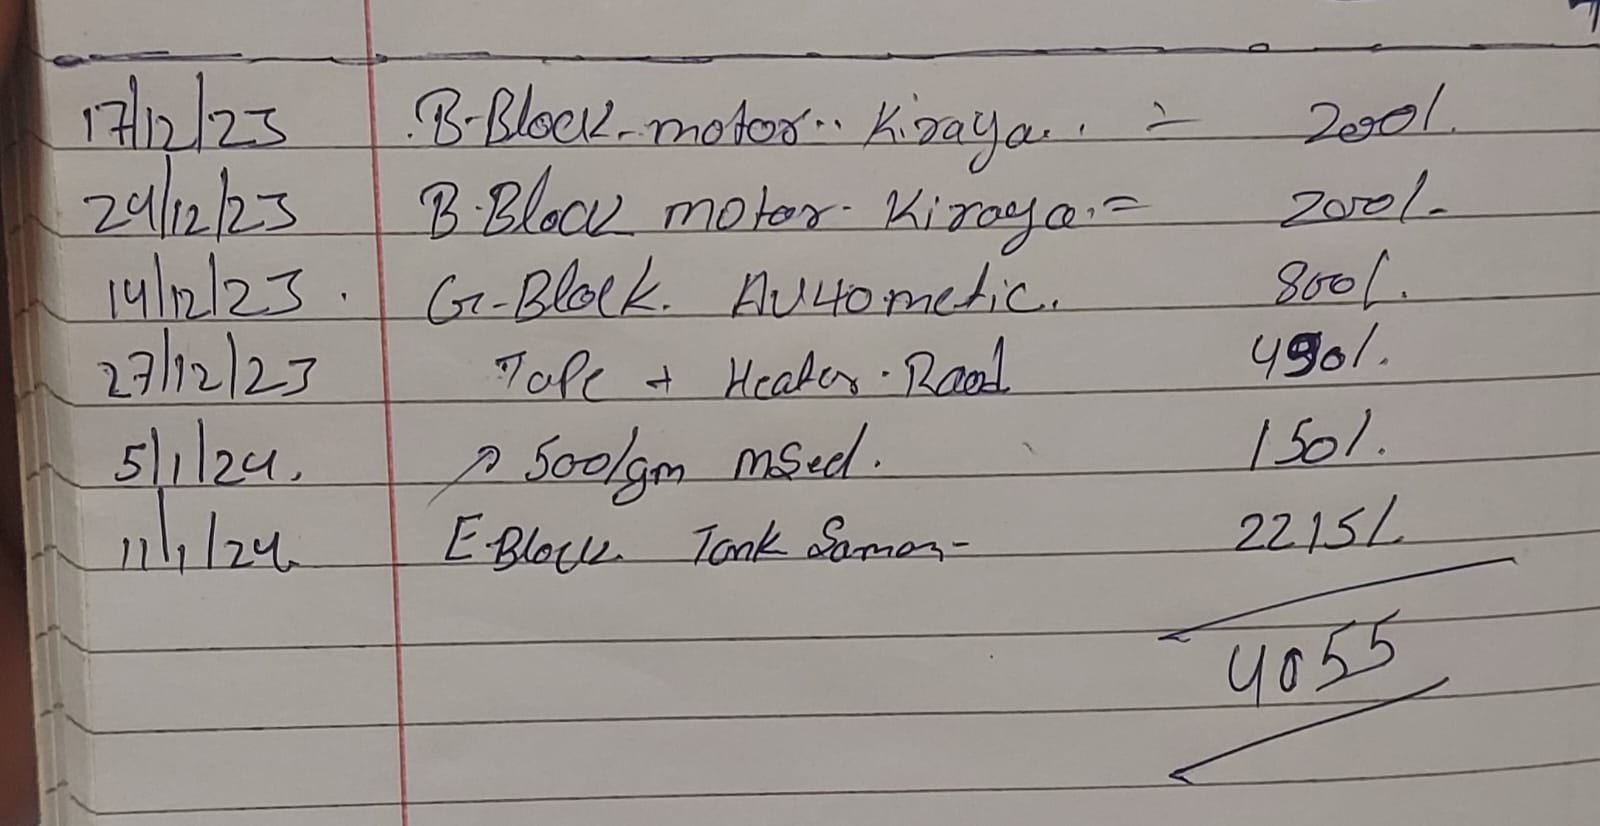 17/12/23 B-Block motor Kiraya = 200/.
24/12/23 B-Block motor Kiraya = 200/-
14/12/23. G-Block. Autometic. 800/.
27/12/23 Tape + Heater Raod 490/.
5/1/24. 500/gm mSed. 150/.
11/1/24 E-Block Tank Saman- 2215/.
4055